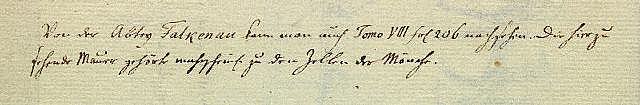 Von der Abtey Falkenau kann man auch Tomo VIII fol 206 nachsehen. Die hier zu
sehende Mauer gehört wahrscheinl. zu den Zellen der Mönche.